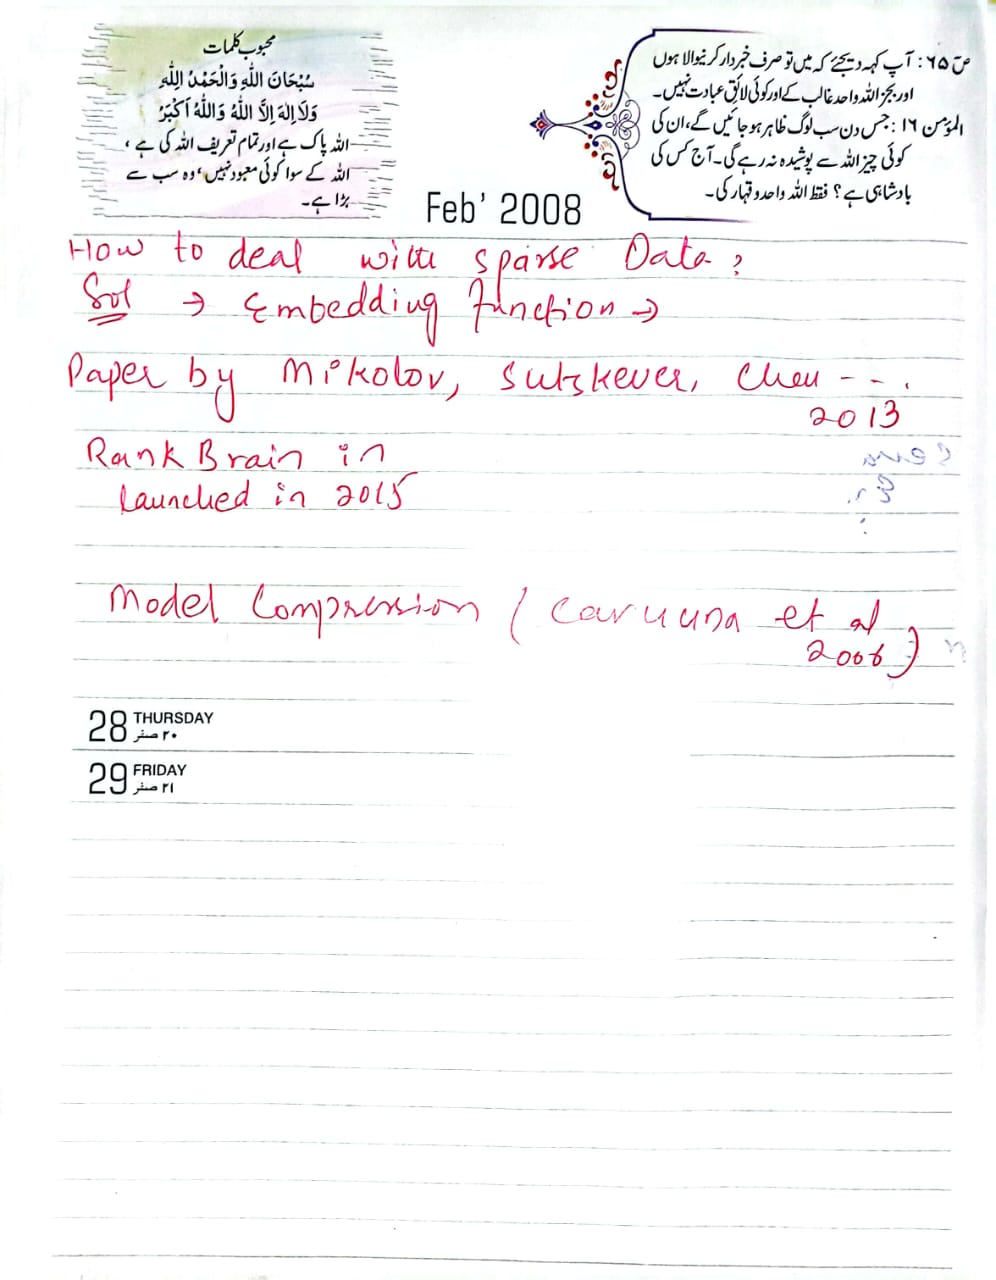 محبوب کلمات
سُبْحَانَ اللّٰهِ وَالْحَمْدُ لِلّٰهِ
وَلَا اِلٰهَ اِلَّا اللّٰهُ وَاللّٰهُ اَكْبَرُ
اللہ پاک ہے اور تمام تعریف اللہ کی ہے ،
اللہ کے سوا کوئی معبود نہیں ، وہ سب سے
بڑا ہے۔
صٓ ٦٥: آپ کہہ دیجئے کہ میں تو صرف خبردار کرنیوالا ہوں
اور بجز اللہ واحد غالب کے اور کوئی لائق عبادت نہیں۔
المؤمن ١٦: جس دن سب لوگ ظاہر ہو جائیں گے، ان کی
کوئی چیز اللہ سے پوشیدہ نہ رہے گی۔ آج کس کی
بادشاہی ہے؟ فقط اللہ واحد و قہار کی۔
Feb' 2008
How to deal with sparse Data?
Sol → Embedding function →
Paper by Mikolov, Sutskever, Chen - - .
2013
RankBrain in
launched in 2015
Model Compression (Caruana et al
2006)
28 THURSDAY
٢٠ صفر
29 FRIDAY
٢١ صفر